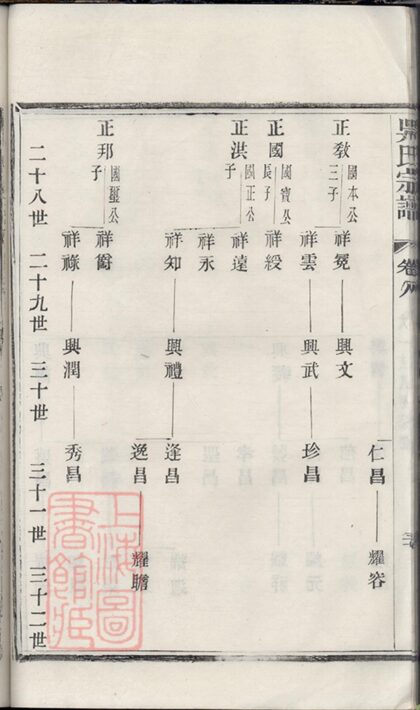 吳氏宗譜
卷八
正敎 國本公三子
祥冕
興文
仁昌
耀容
祥雲
興武
珍昌
正國 國寶公長子
祥綬
正洪 國正公子
祥遠
祥永
祥知
興禮
逢昌
逸昌
耀瞻
正邦 國璽公子
祥爵
祥祿
興潤
秀昌
二十八世
二十九世
三十世
三十一世
三十二世
上海圖書館藏